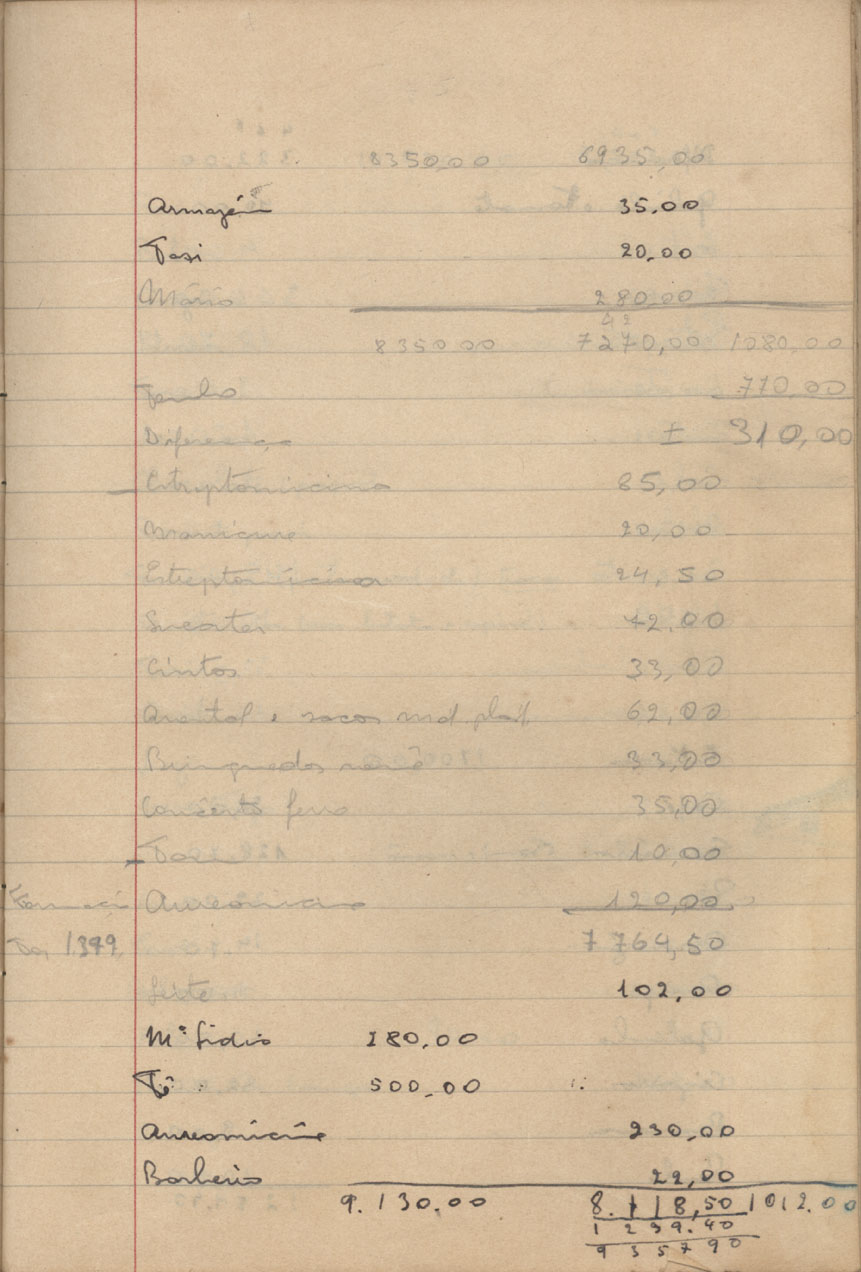 8350,00 6935,00
Armazém 35,00
Taxi 20,00
Mário 280,00
42
8350 00 7270,00 1080,00
770,00
Diferença ± 310,00
Estreptomicina 85,00
Manicure 20,00
Estreptomicina 24,50
42,00
Cintos 33,00
Avental e sacos mat plast 62,00
Brinquedos 33,00
Conserto ferro 35,00
10,00
Aureomicina 120,00
1.349 7764,50
Leite 102,00
Mª Lidia 280,00
Tó 500,00
Aureomicina 230,00
Barbeiro 22,00
9.130.00 8.118,50 1012.00
1239.40
935790